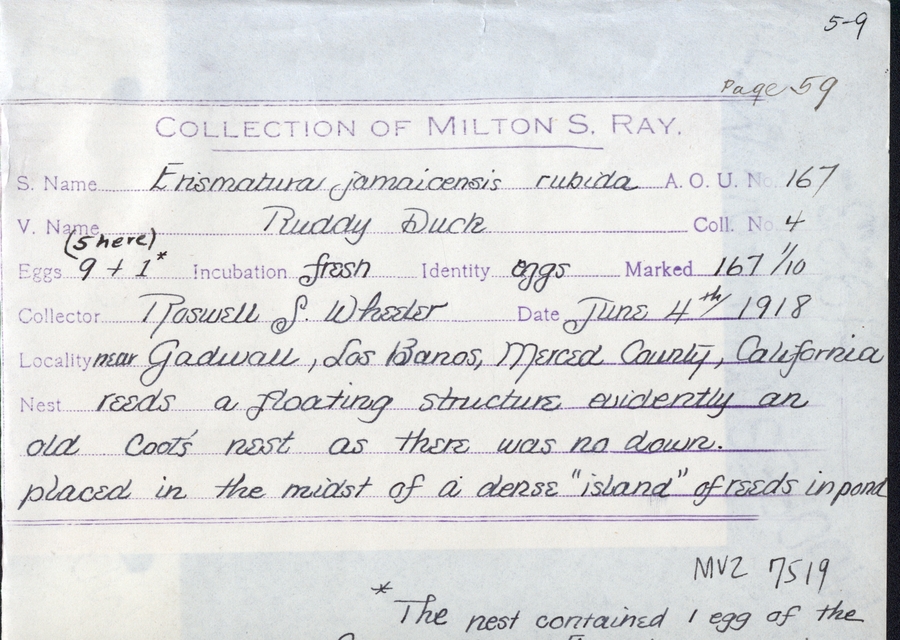 5-9
Page 59
COLLECTION OF MILTON S. RAY.
S. Name Erismatura jamaicensis rubida A. O. U. No. 167
V. Name Ruddy Duck Coll. No. 4
(5 here)
Eggs 9 + 1* Incubation fresh Identity eggs Marked 167 11/10
Collector Roswell S. Wheeler Date June 4th/ 1918
Locality near Gadwall, Los Banos, Merced County, California
Nest reeds a floating structure evidently an
old Coot's nest as there was no down.
placed in the midst of a dense "island" of reeds in pond
MVZ 7519
* The nest contained 1 egg of the